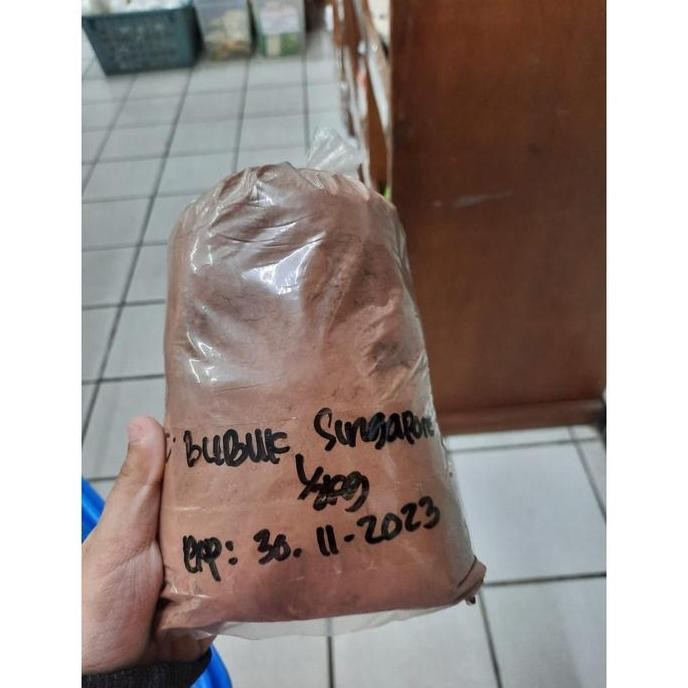 : BUBUK Singapore
1/2kg
exp: 30.11-2023